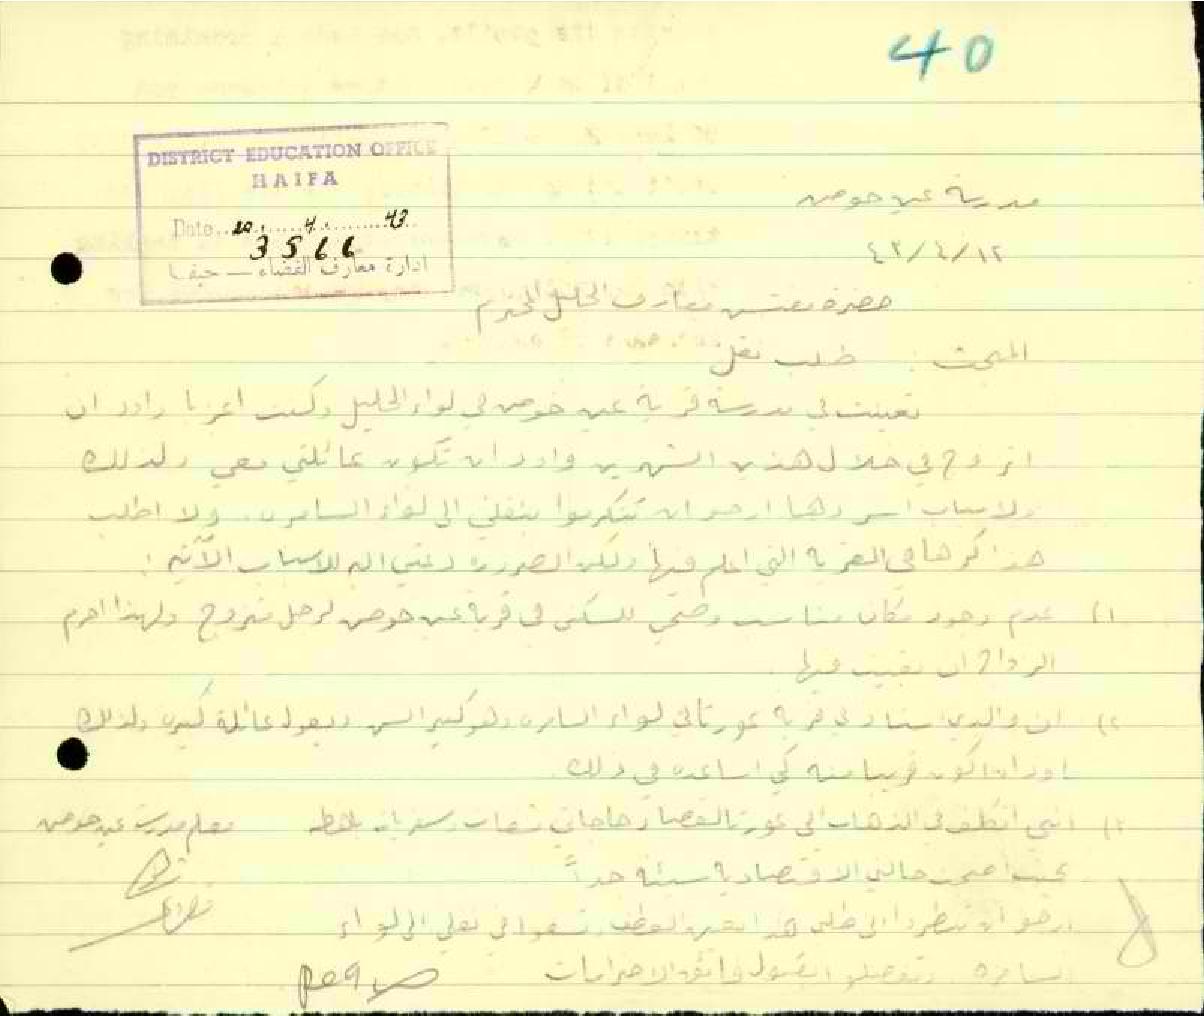 40
DISTRICT EDUCATION OFFICE
HAIFA
Date 20.4.43
3566
ادارة معارف القضاء — حيفا
مدرسة عين حوض
٤٣/٤/١٢
حضرة مفتش معارف الجليل المحترم
المبحث : طلب نقل
تعينت في مدرسة قرية عين حوض في لواء الجليل وكنت اعزبا واود ان
اتزوج في خلال هذين الشهرين واود ان تكون عائلتي معي ولذلك
ولاسباب اسردها ارجو ان تتكرموا بنقلي الى لواء السامرة. ولا اطلب
هذا كرها في القرية التي اعلم فيها ولكن الضرورة دعتني اليه للاسباب الآتية :
١) عدم وجود مكان مناسب وصحي للسكن في قرية عين حوض لرجل متزوج ولهذا احرم
الزواج ان بقيت فيها.
٢) ان والدي استاذ في قرية عورتا في لواء السامرة وهو كبير السن ويعول عائلة كبيرة ولذلك
اود ان اكون قريبا منه كي اساعده في ذلك.
٣) انني اتكلف في الذهاب الى عورتا لقضاء حاجاتي نفقات باهظة
بحيث اصبحت حالتي الاقتصادية سيئة جداً
ارجو ان تنظروا الى طلبي هذا بعين العطف في نقلي الى لواء
السامرة وتفضلوا بقبول فائق الاحترامات
معلم مدرسة عين حوض